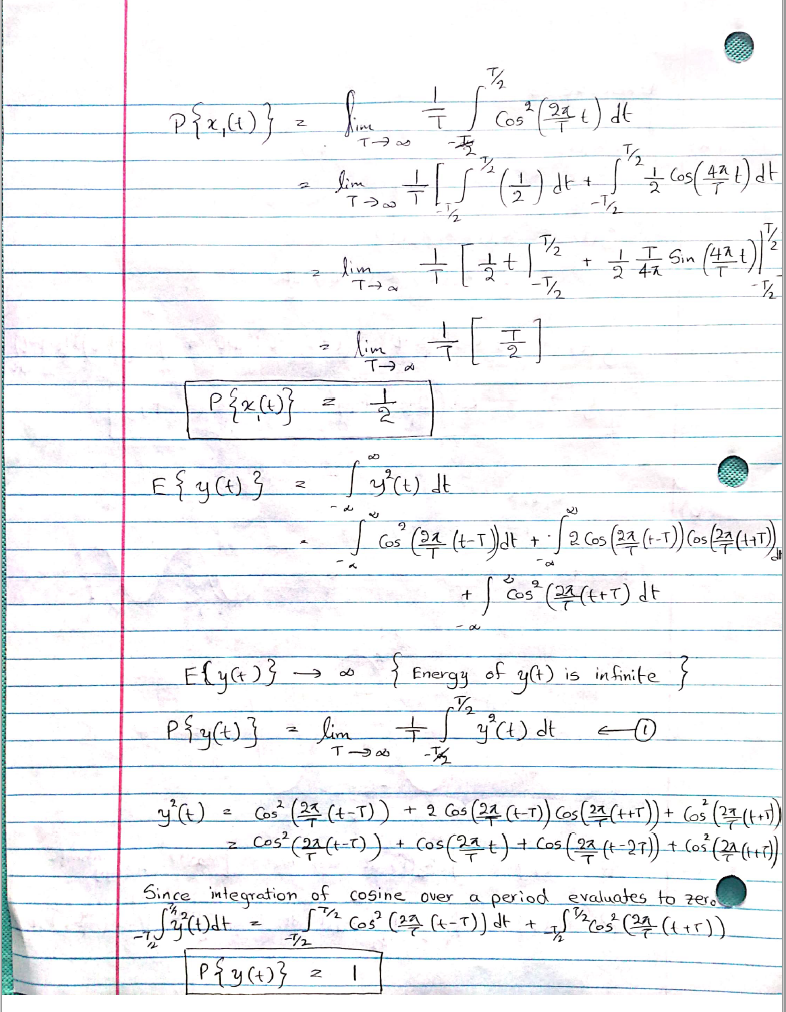 P{x₁(t)} = lim_{T→∞} 1/T ∫_{-T/2}^{T/2} Cos²(2π/T t) dt
= lim_{T→∞} 1/T [∫_{-T/2}^{T/2} (1/2) dt + ∫_{-T/2}^{T/2} 1/2 Cos(4π/T t) dt
= lim_{T→∞} 1/T [1/2 t |_{-T/2}^{T/2} + 1/2 T/4π Sin(4π/T t)|_{-T/2}^{T/2}
= lim_{T→∞} 1/T [T/2]
P{x₁(t)} = 1/2
E{y(t)} = ∫_{-∞}^{∞} y²(t) dt
= ∫_{-∞}^{∞} Cos²(2π/T (t-T))dt + ∫_{-∞}^{∞} 2 Cos(2π/T (t-T)) Cos(2π/T (t+T)) dt
+ ∫_{-∞}^{∞} Cos²(2π/T (t+T) dt
E{y(t)} → ∞ { Energy of y(t) is infinite }
P{y(t)} = lim_{T→∞} 1/T ∫_{-T/2}^{T/2} y²(t) dt ← ①
y²(t) = Cos²(2π/T (t-T)) + 2 Cos(2π/T (t-T)) Cos(2π/T (t+T)) + Cos²(2π/T (t+T))
= Cos²(2π/T (t-T)) + Cos(2π/T t) + Cos(2π/T (t-2T)) + Cos²(2π/T (t+T))
Since integration of cosine over a period evaluates to zero
∫_{-T/2}^{T/2} y²(t)dt = ∫_{-T/2}^{T/2} Cos²(2π/T (t-T)) dt + ∫_{-T/2}^{T/2} Cos²(2π/T (t+T))
P{y(t)} = 1